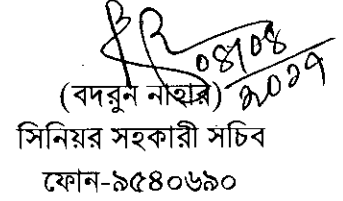 ০৪/০৪
২০২৭
(বদরুন নাহার)
সিনিয়র সহকারী সচিব
ফোন-৯৫৪০৬৯০